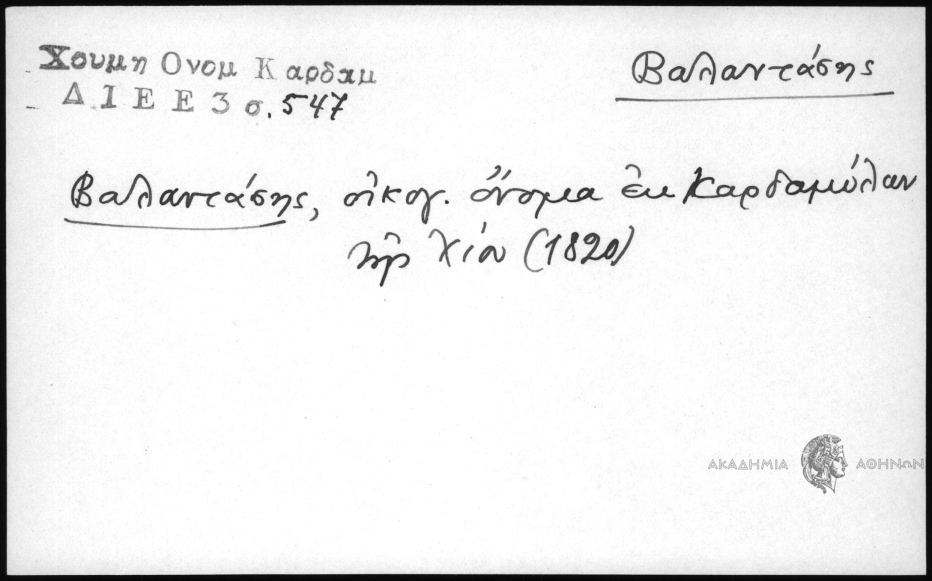 Χουμη Ονομ Καρδαμ
Δ Ι Ε Ε 3 σ. 547
Βαλαντάσης
Βαλαντάσης, οἰκογ. ὄνομα ἐκ Καρδαμύλων
τῆς Χίου (1820)
ΑΚΑΔΗΜΙΑ ΑΘΗΝΩΝ